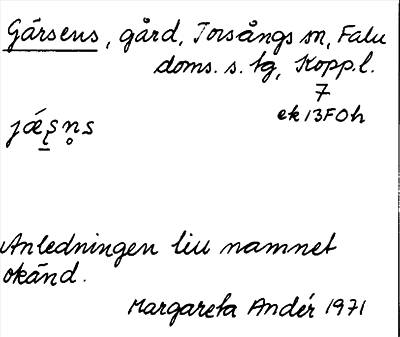 Gärsens, gård, Torsångs sn, Falu
doms. s. tg, Kopp.l.
7
ek 13F0h
jǽş̱n̥s
Anledningen till namnet
okänd.
Margareta Andér 1971